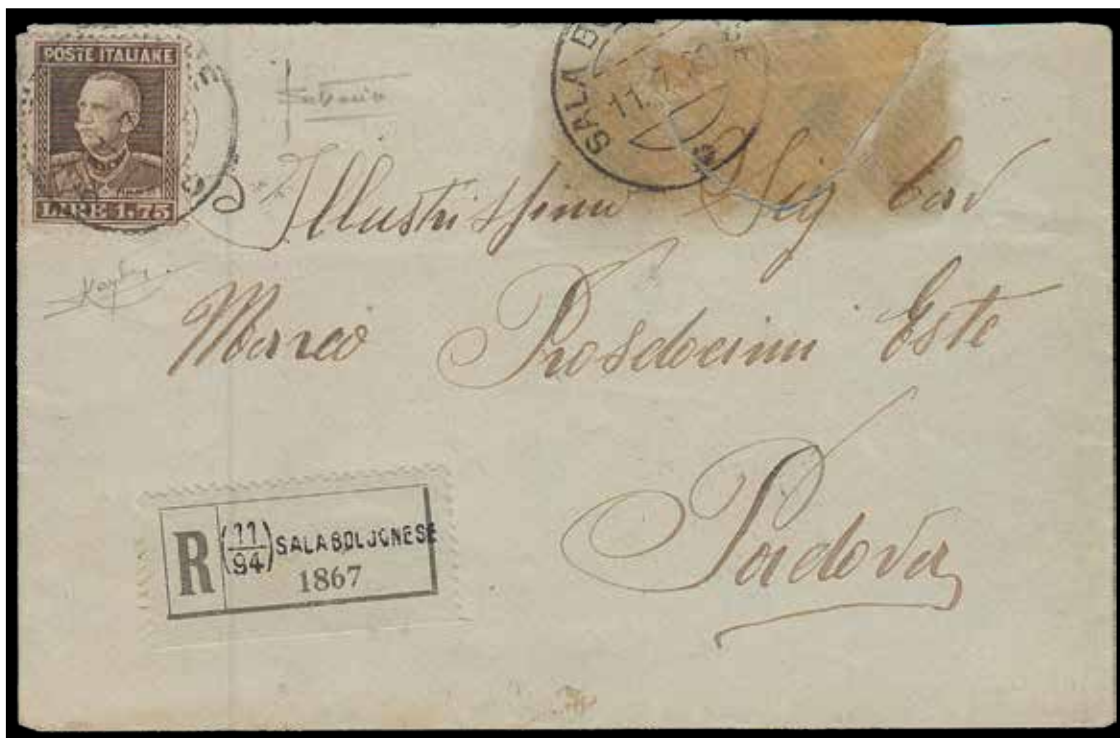 POSTE ITALIANE
LIRE 1.75
SALA B
11.
Illustrissimo Sig Cav
Marco Prosdocimi Este
Padova
R (11/94) SALABOLOGNESE
1867